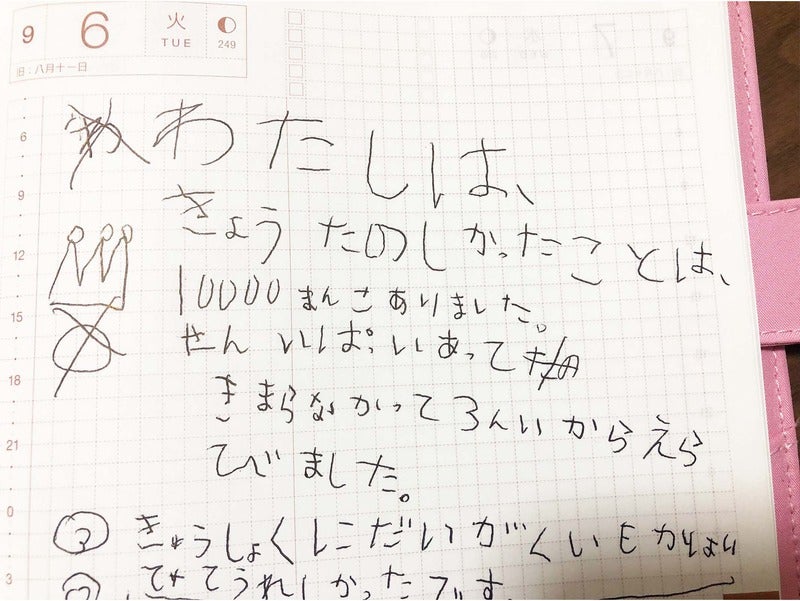 9 6 火 TUE 249
旧:八月十一日
わたしは、
きょう たのしかったことは、
10000まんこありました。
せんいっぱいあって
きまらなかって3んいからえら
てべました。
② きゅうしょくにだいがくいもがはい
てれてうれしかったです。
6
9
12
15
18
21
0
3